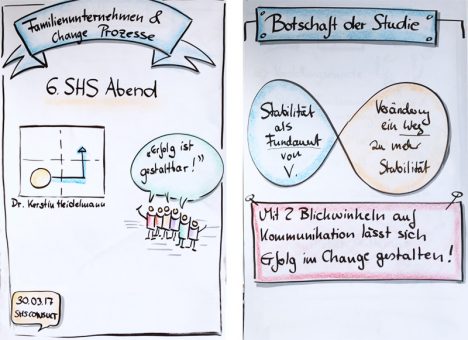 Familienunternehmen &
Change Prozesse
6. SHS Abend
Dr. Kerstin Heidelmann
„Erfolg ist
gestaltbar!"
30.03.17
SHS CONSULT
Botschaft der Studie
Stabilität
als
Fundament
von
V.
Veränderung
ein Weg
zu mehr
Stabilität
Mit 2 Blickwinkeln auf
Kommunikation lässt sich
Erfolg im Change gestalten!